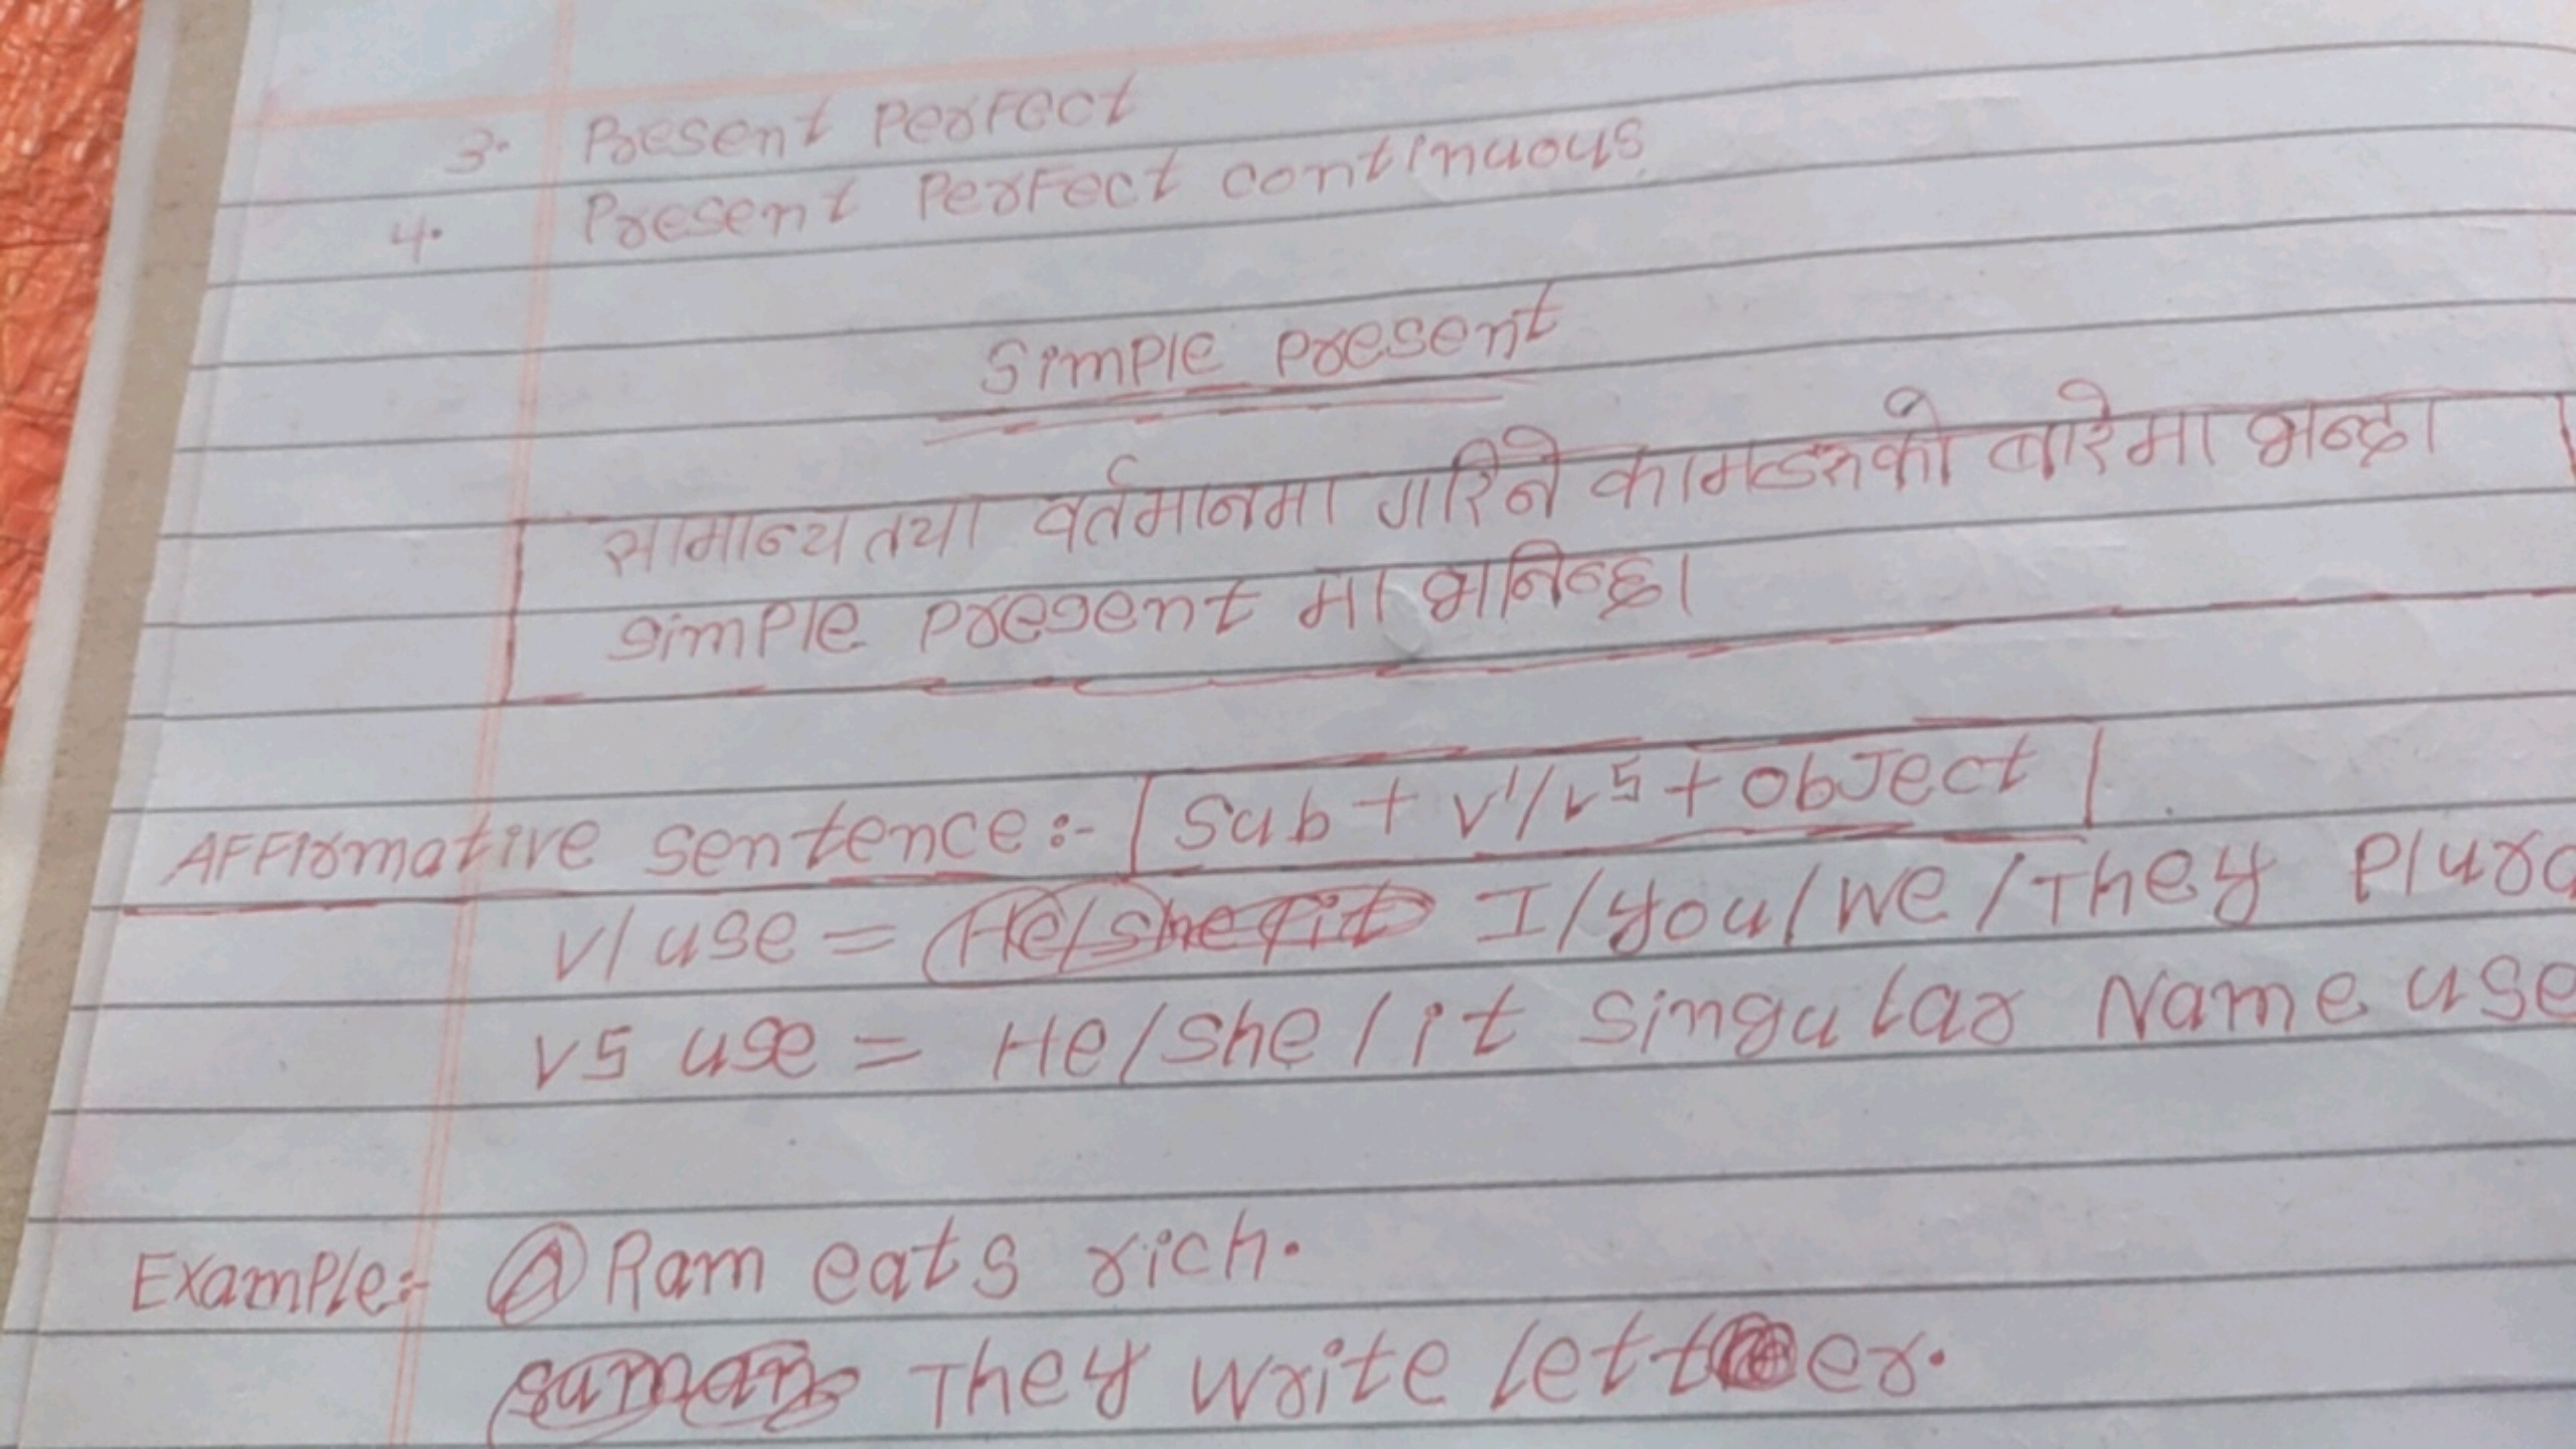 3. Present Perfect
4. Present Perfect continuous
Simple Present
सामान्यतया वर्तमानमा गरिने कामहरुको बारेमा भन्दा
simple present मा भनिन्छ।
Affirmative sentence:- Sub + v1/v5 + object
v1 use = He/she/it I/you/we/They Plura
v5 use = He/she/it singular Name use
Example:- A Ram eats rich.
They write letter.